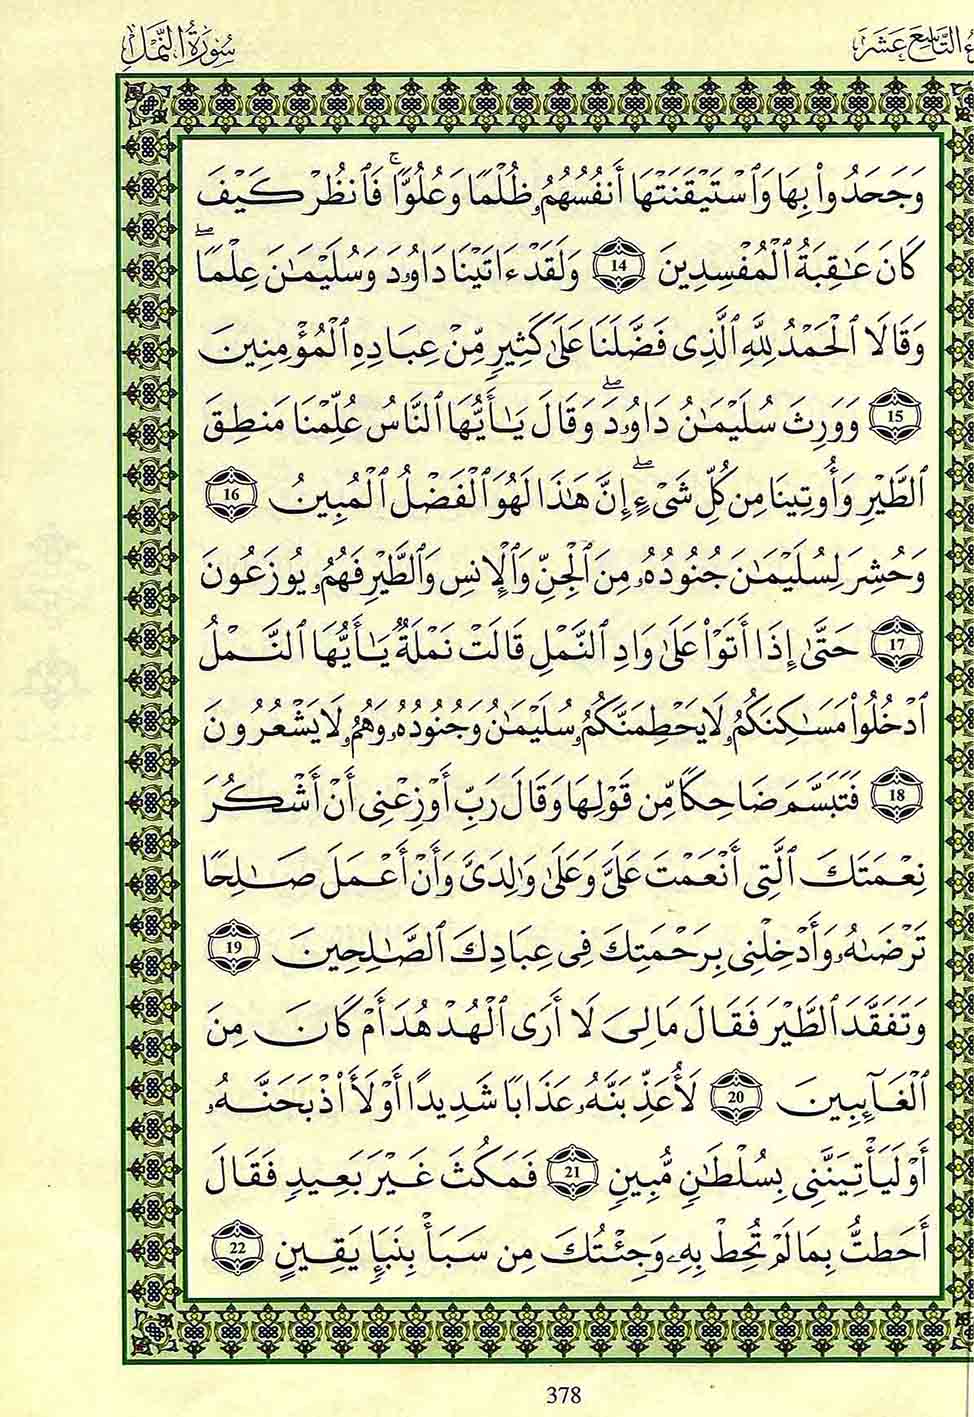 سُورَةُ النَّمْلِ
التَّاسِعَ عَشَرَ
وَجَحَدُوا۟ بِهَا وَٱسْتَيْقَنَتْهَا أَنفُسُهُمُۥ ظُلْمًا وَعُلُوًّا ۚ فَٱنظُرْ كَيْفَ
كَانَ عَـٰقِبَةُ ٱلْمُفْسِدِينَ 14 وَلَقَدْ ءَاتَيْنَا دَاوُۥدَ وَسُلَيْمَـٰنَ عِلْمًا ۖ
وَقَالَا ٱلْحَمْدُ لِلَّهِ ٱلَّذِى فَضَّلَنَا عَلَىٰ كَثِيرٍ مِّنْ عِبَادِهِ ٱلْمُؤْمِنِينَ
15 وَوَرِثَ سُلَيْمَـٰنُ دَاوُۥدَ ۖ وَقَالَ يَـٰٓأَيُّهَا ٱلنَّاسُ عُلِّمْنَا مَنطِقَ
ٱلطَّيْرِ وَأُوتِينَا مِن كُلِّ شَىْءٍ ۖ إِنَّ هَـٰذَا لَهُوَ ٱلْفَضْلُ ٱلْمُبِينُ 16
وَحُشِرَ لِسُلَيْمَـٰنَ جُنُودُهُۥ مِنَ ٱلْجِنِّ وَٱلْإِنسِ وَٱلطَّيْرِ فَهُمُۥ يُوزَعُونَ
17 حَتَّىٰ إِذَا أَتَوْا۟ عَلَىٰ وَادِ ٱلنَّمْلِ قَالَتْ نَمْلَةٌ يَـٰأَيُّهَا ٱلنَّمْلُ
ٱدْخُلُوا۟ مَسَـٰكِنَكُمُۥ لَا يَحْطِمَنَّكُمُۥ سُلَيْمَـٰنُ وَجُنُودُهُۥ وَهُمُۥ لَا يَشْعُرُونَ
18 فَتَبَسَّمَ ضَاحِكًا مِّن قَوْلِهَا وَقَالَ رَبِّ أَوْزِعْنِى أَنْ أَشْكُرَ
نِعْمَتَكَ ٱلَّتِى أَنْعَمْتَ عَلَىَّ وَعَلَىٰ وَٰلِدَىَّ وَأَنْ أَعْمَلَ صَـٰلِحًا
تَرْضَىٰهُ وَأَدْخِلْنِى بِرَحْمَتِكَ فِى عِبَادِكَ ٱلصَّـٰلِحِينَ 19
وَتَفَقَّدَ ٱلطَّيْرَ فَقَالَ مَا لِىَ لَا أَرَى ٱلْهُدْهُدَ أَمْ كَانَ مِنَ
ٱلْغَآئِبِينَ 20 لَأُعَذِّبَنَّهُۥ عَذَابًا شَدِيدًا أَوْ لَأَا۟ذْبَحَنَّهُۥ
أَوْ لَيَأْتِيَنَّنِى بِسُلْطَـٰنٍ مُّبِينٍ 21 فَمَكُثَ غَيْرَ بَعِيدٍ فَقَالَ
أَحَطتُ بِمَا لَمْ تُحِطْ بِهِۦ وَجِئْتُكَ مِن سَبَأَ بِنَبَإٍ يَقِينٍ 22
378